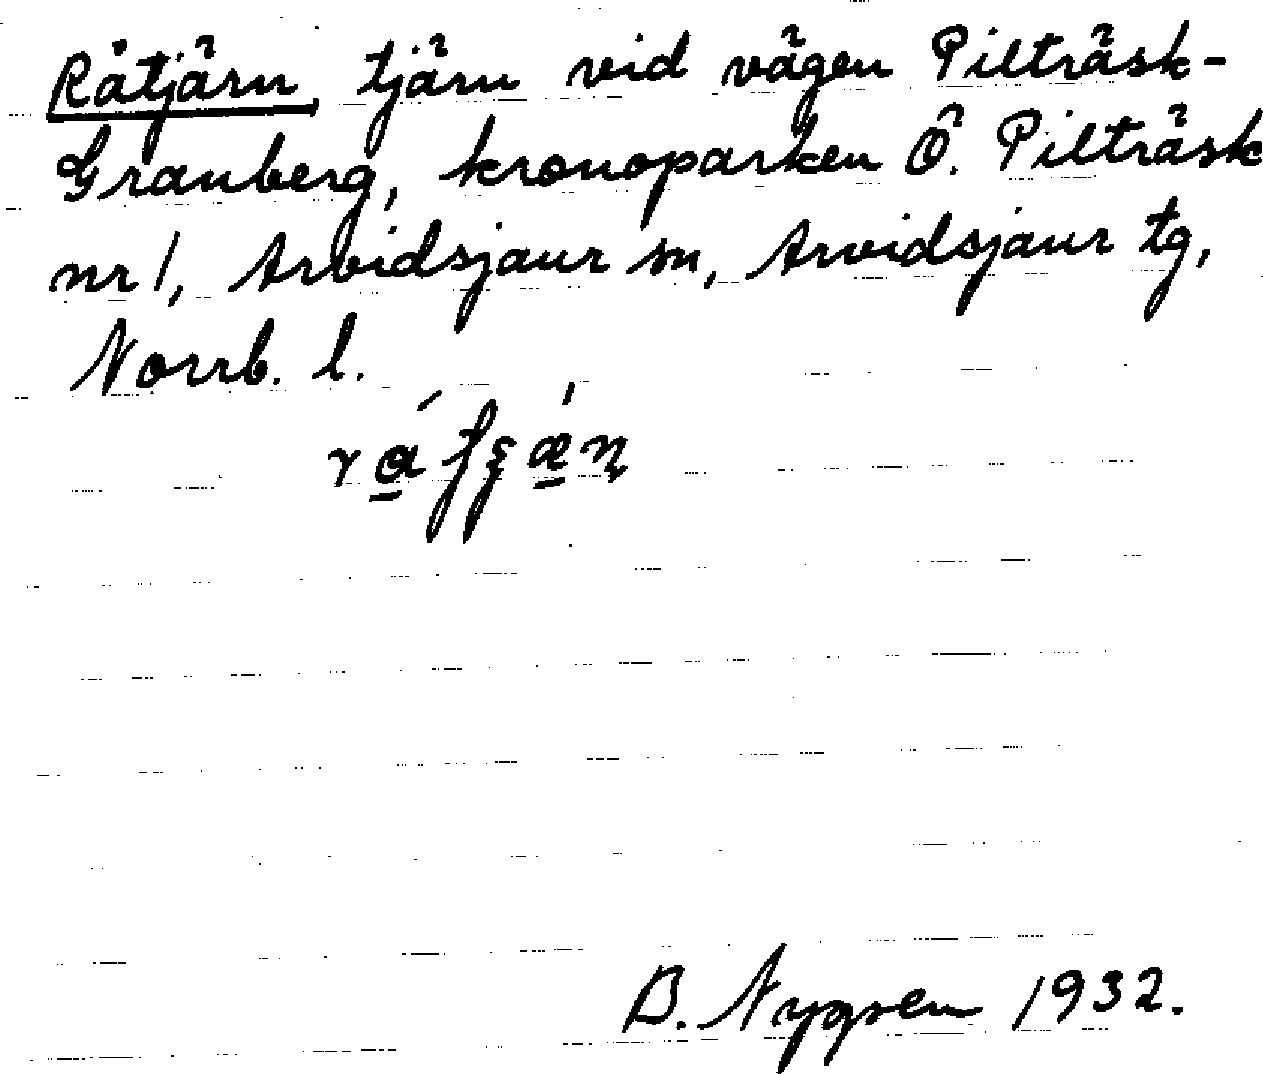 Råtjärn, tjärn vid vägen Pilträsk-
Granberg, kronoparken Ö. Pilträsk
nr 1, Arvidsjaur sn, Arvidsjaur tg,
Norrb. l.
B. Nygren 1932.